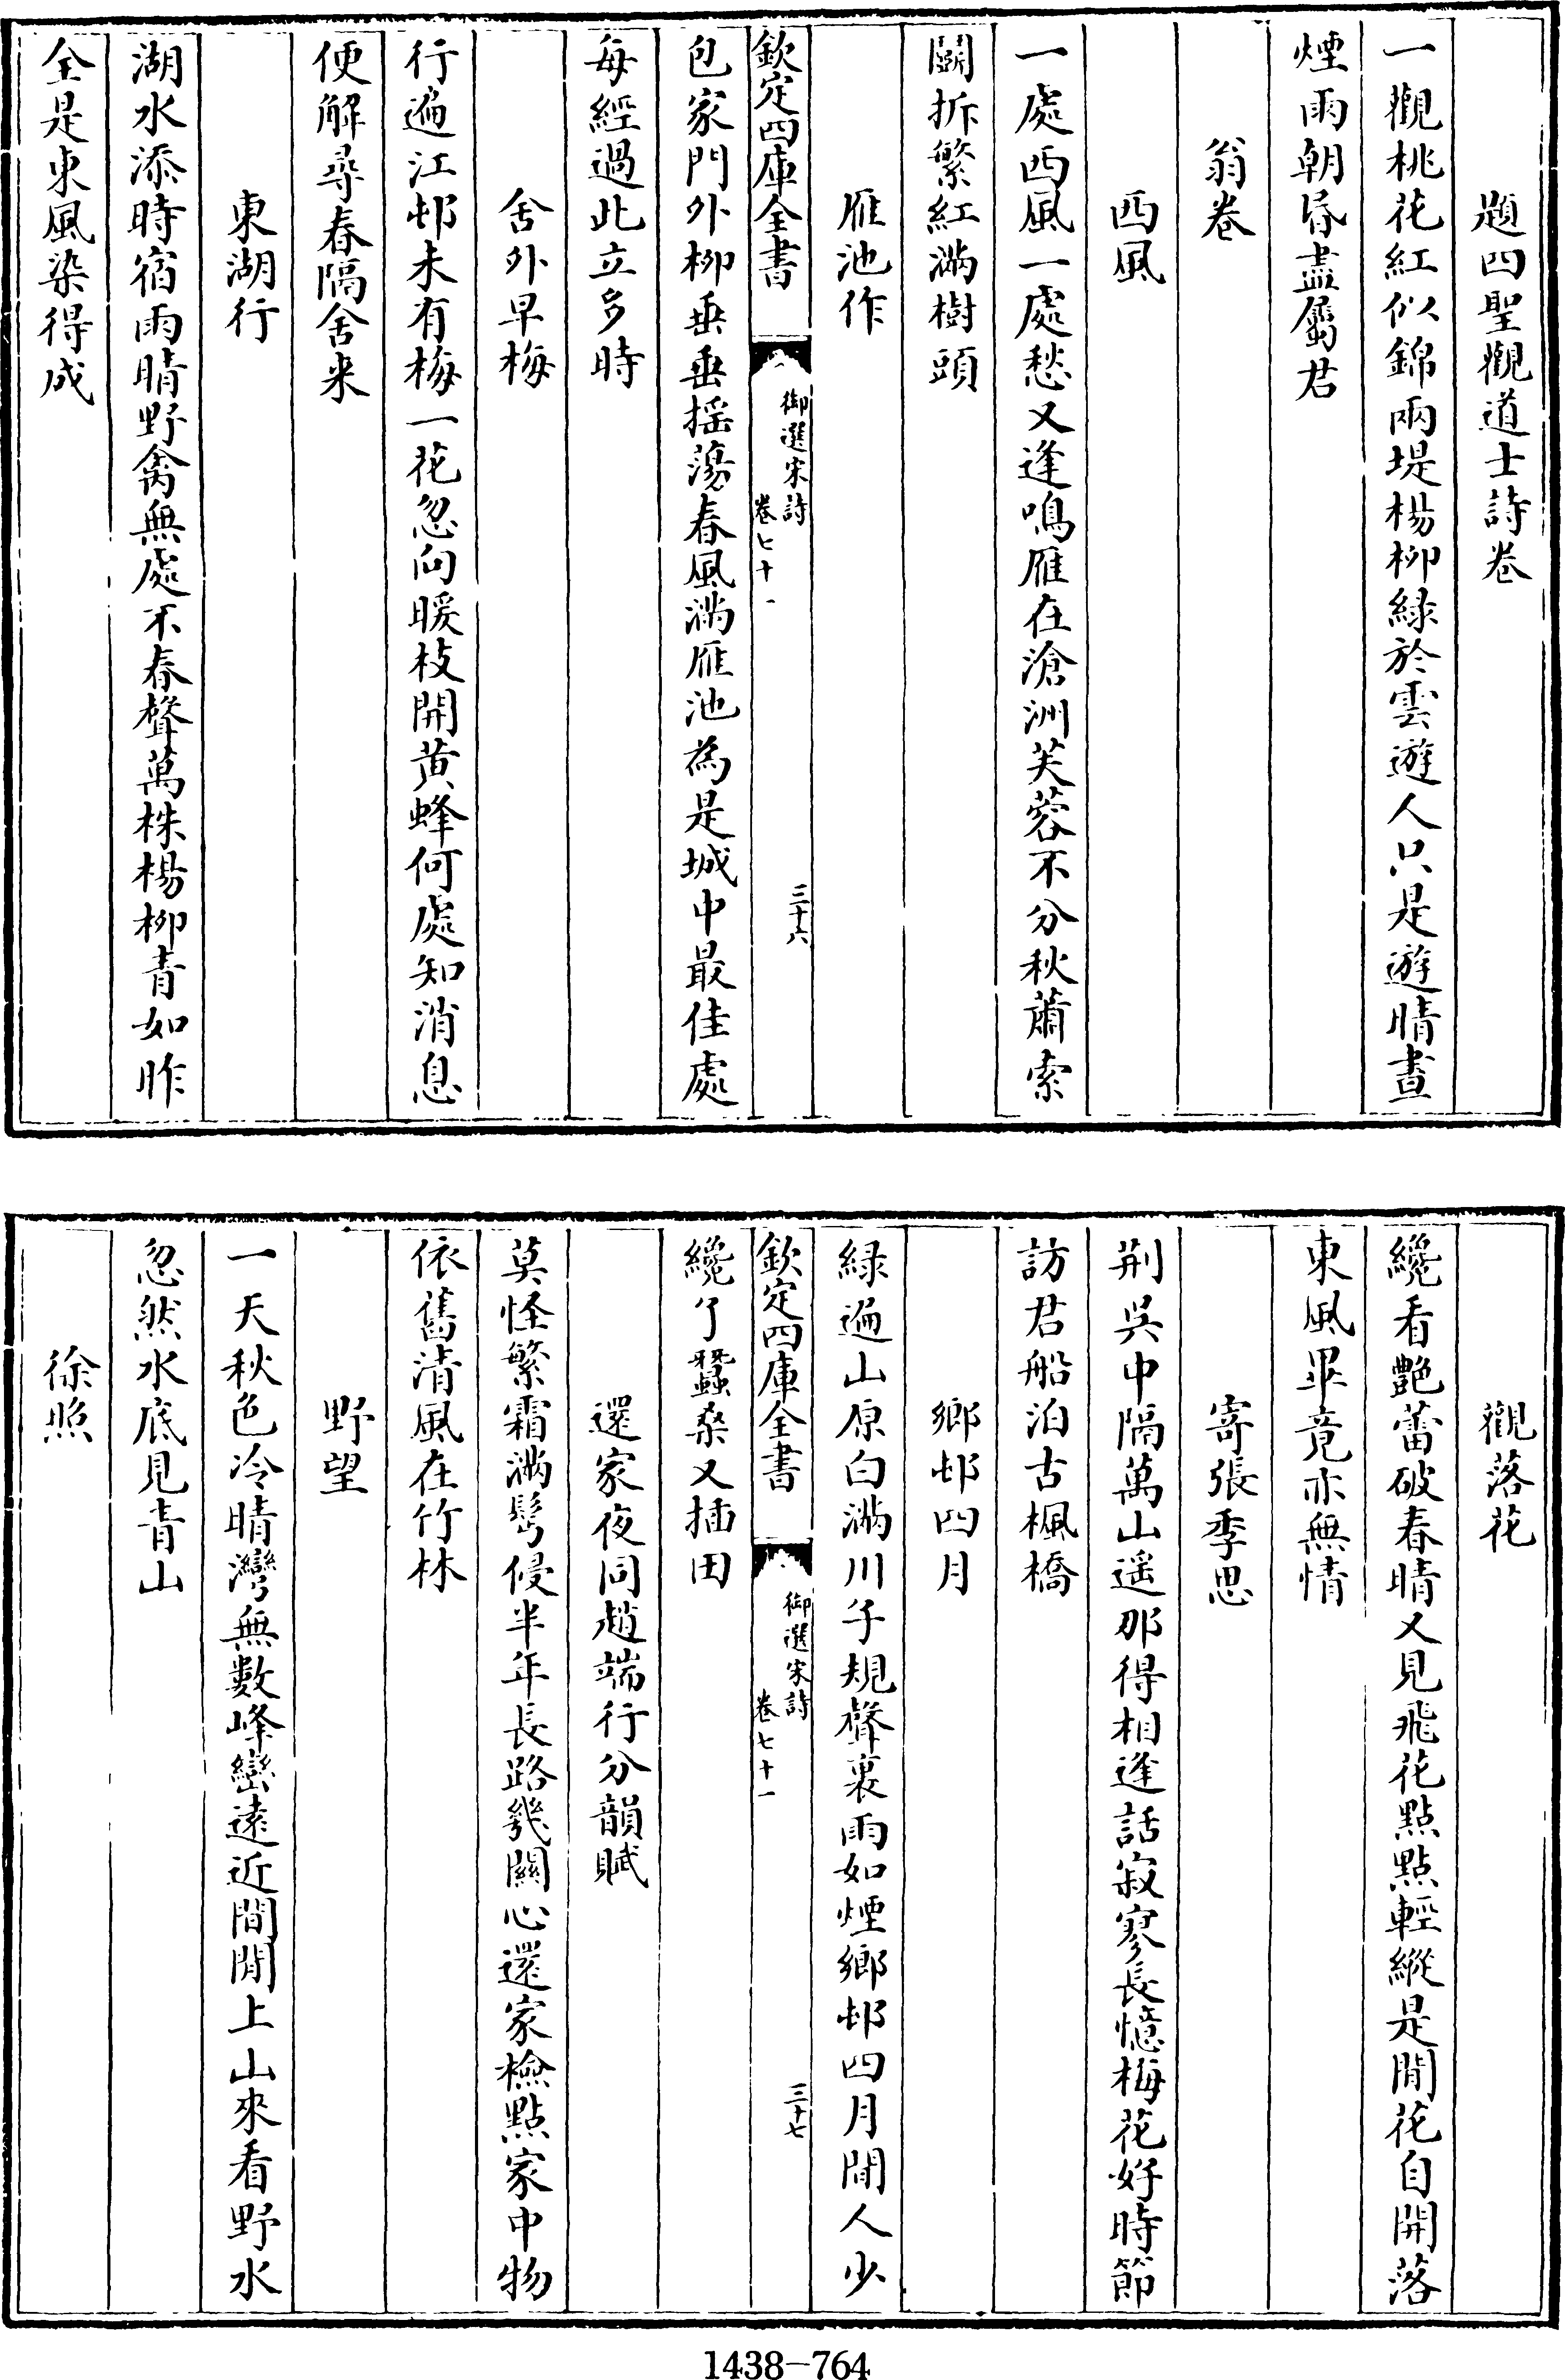 題四聖觀道士詩卷
一觀桃花紅似錦兩堤楊柳緑於雲遊人只是遊晴晝
煙雨朝昏盡屬君
翁卷
西風
一處西風一處愁又逢鳴雁在滄洲芙蓉不分秋蕭索
鬬拆繁紅滿樹頭
雁池作
欽定四庫全書
御選宋詩
卷七十一
三十六
包家門外柳垂垂揺蕩春風滿雁池為是城中最佳處
每經過此立多時
舍外早梅
行遍江邨未有梅一花忽向暖枝開黄蜂何處知消息
便解尋春隔舍来
東湖行
湖水添時宿雨晴野禽無處不春聲萬株楊柳青如昨
全是東風染得成
觀落花
纔看艷蕾破春晴又見飛花點點輕縱是閒花自開落
東風畢竟亦無情
寄張季思
荆吳中隔萬山遥那得相逢話寂寥長憶梅花好時節
訪君船泊古楓橋
鄉邨四月
緑遍山原白滿川子規聲裏雨如煙鄉邨四月閒人少
欽定四庫全書
御選宋詩
卷七十一
三十七
纔了蠶桑又插田
還家夜同趙端行分韻賦
莫怪繁霜滿鬢侵半年長路幾關心還家檢點家中物
依舊清風在竹林
野望
一天秋色冷晴灣無數峰巒遠近間閒上山來看野水
忽然水底見青山
徐照
1438-764